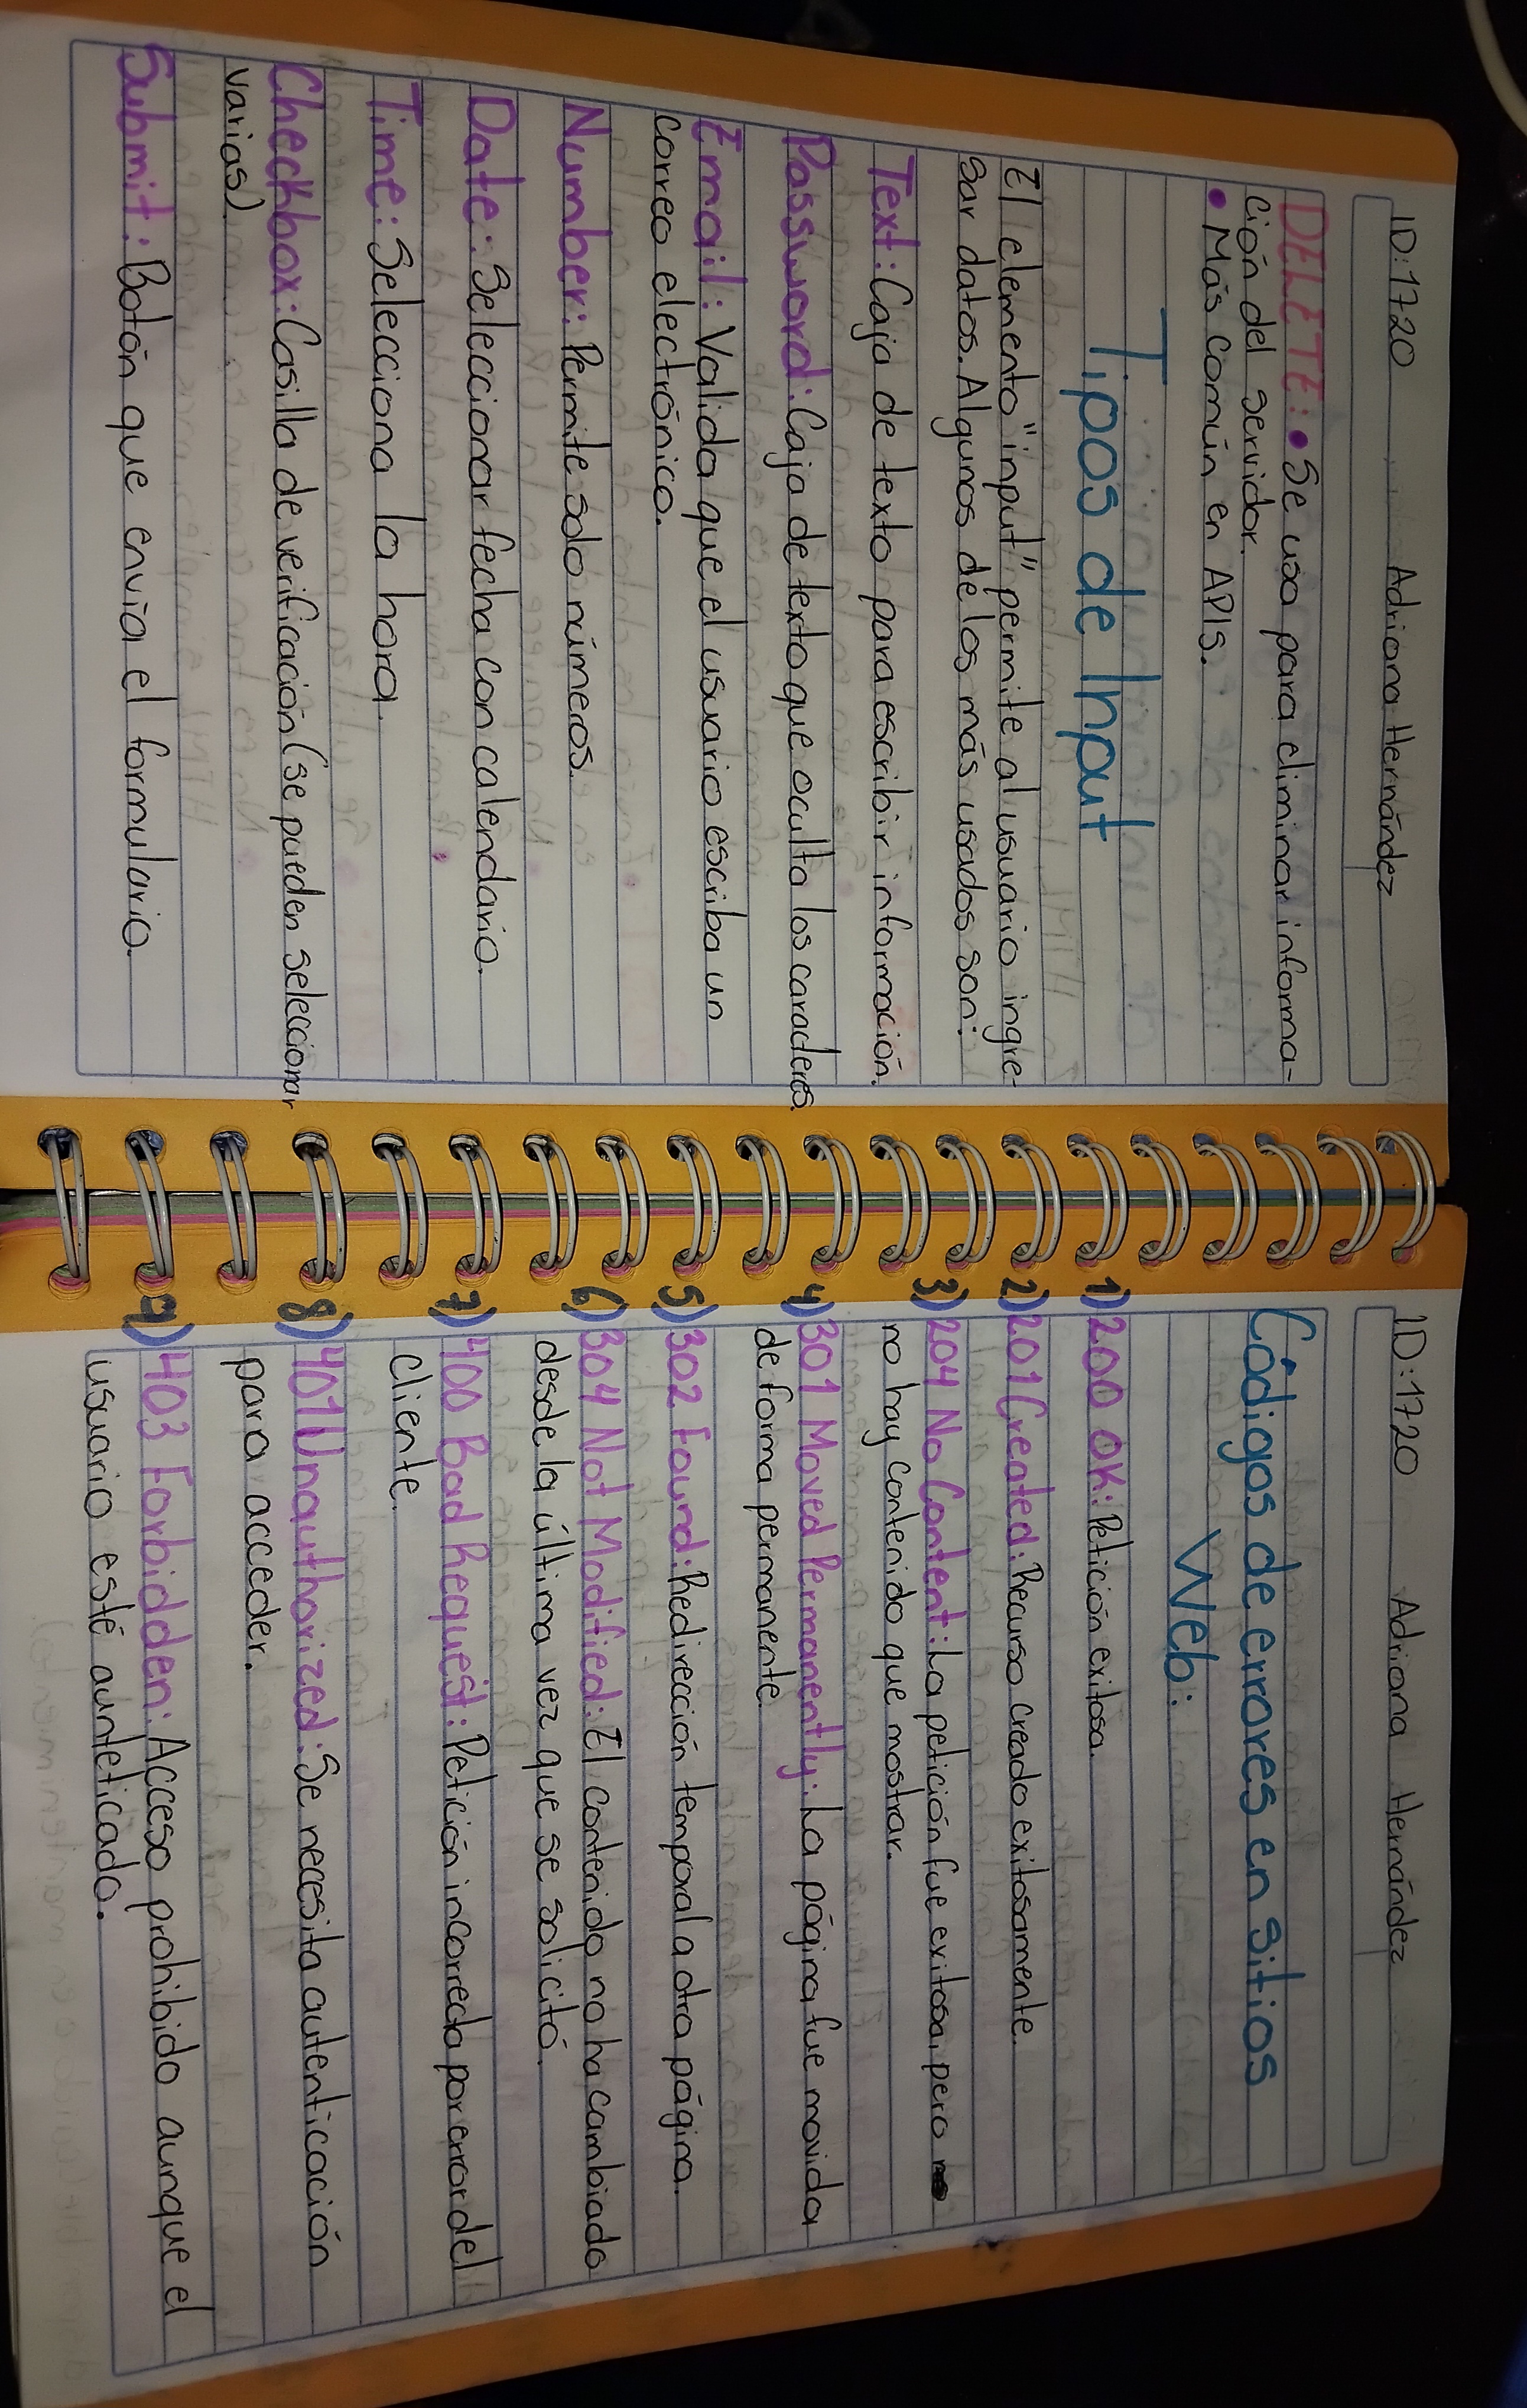 ID:1720 Adriana Hernández
DELETE: • Se usa para eliminar informa-
ción del servidor.
• Más común en APIs.
Tipos de Input
El elemento "input" permite al usuario ingre-
sar datos. Algunos de los más usados son:
Text: Caja de texto para escribir información.
Password: Caja de texto que oculta los caracteres.
Email: Valida que el usuario escriba un
correo electrónico.
Number: Permite solo números.
Date: Seleccionar fecha con calendario.
Time: Selecciona la hora.
Checkbox: Casilla de verificación (se pueden seleccionar
varias)
Submit: Botón que envía el formulario.
ID:1720 Adriana Hernández
Códigos de errores en sitios
Web:
1) 200 OK: Petición exitosa.
2) 201 Created: Recurso creado exitosamente.
3) 204 No Content: La petición fue exitosa, pero
no hay contenido que mostrar.
4) 301 Moved Permanently: La página fue movida
de forma permanente.
5) 302 Found: Redirección temporal a otra página.
6) 304 Not Modified: El contenido no ha cambiado
desde la última vez que se solicitó.
7) 400 Bad Request: Petición incorrecta por error del
cliente.
8) 401 Unauthorized: Se necesita autenticación
para acceder.
9) 403 Forbidden: Acceso prohibido aunque el
usuario esté aunteticado.